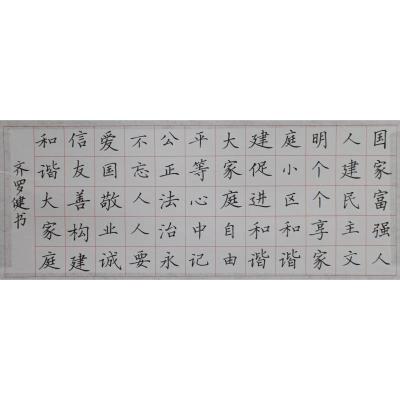 国家富强人
人建民主文
明个个享家
庭小区和谐
建促进和谐
大家庭自由
平等心中记
公正法治永
不忘人人要
爱国敬业诚
信友善构建
和谐大家庭
齐罗健书